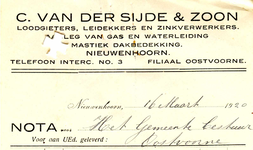 C. VAN DER SIJDE & ZOON
LOODGIETERS, LEIDEKKERS EN ZINKVERWERKERS.
LEG VAN GAS EN WATERLEIDING
MASTIEK DAKBEDEKKING.
NIEUWENHOORN.
TELEFOON INTERC. NO. 3 FILIAAL OOSTVOORNE.
Nieuwenhoorn, 16 Maart 1920
NOTA Het Gemeente bestuur
Voor aan UEd. geleverd: Oostvoorne